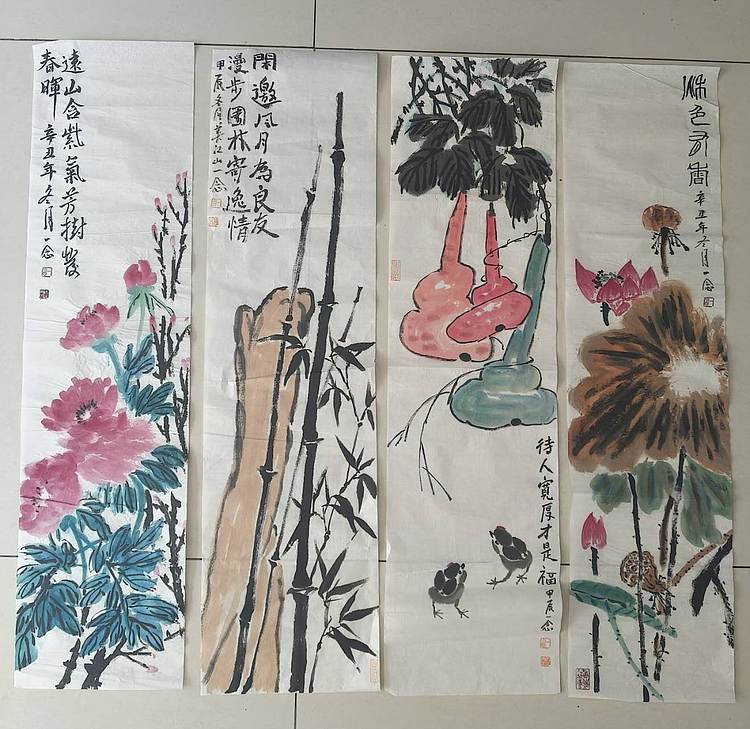 遠山含紫氣芳樹發
春暉 辛丑年冬月一念
閑邀風月為良友
漫步園林寄逸情
甲辰冬月江山一念
待人寬厚才是福 甲辰一念
色
辛丑年冬月一念